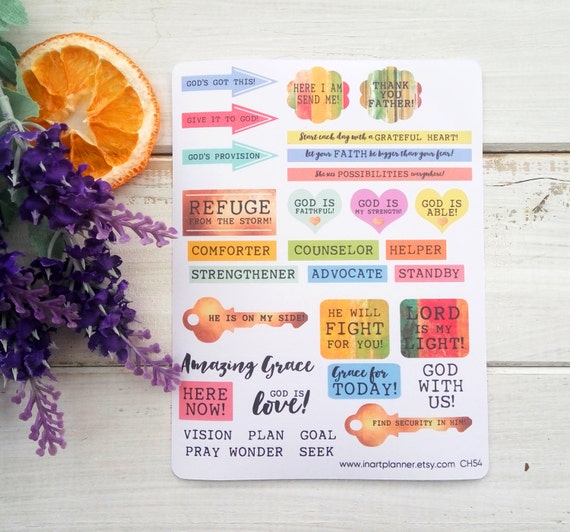 GOD'S GOT THIS!
GIVE IT TO GOD!
GOD'S PROVISION
HERE I AM
SEND ME!
THANK
YOU
FATHER!
Start each day with a GRATEFUL HEART!
let your FAITH be bigger than your fear!
She sees POSSIBILITIES everywhere!
REFUGE
FROM THE STORM!
GOD IS
FAITHFUL!
GOD IS
MY STRENGTH!
GOD IS
ABLE!
COMFORTER
COUNSELOR
HELPER
STRENGTHENER
ADVOCATE
STANDBY
HE IS ON MY SIDE!
HE WILL
FIGHT
FOR YOU!
LORD
IS MY
LIGHT!
Amazing Grace
HERE
NOW!
GOD IS
love!
Grace for
TODAY!
GOD
WITH
US!
FIND SECURITY IN HIM!
VISION PLAN GOAL
PRAY WONDER SEEK
www.inartplanner.etsy.com CH54